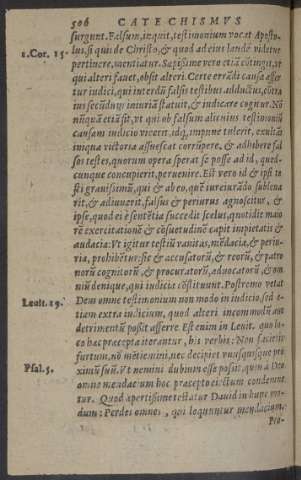 506 CATECHISMVS
surgunt. Falsum, inquit, testimonium vocat Aposto-
1.Cor. 15. lus, si quis de Christo, & quod ad eius laudē videtur
pertinere, mentiatur. Sæpissime vero etiā cōtingit, vt
qui alteri fauet, obsit alteri. Certe errādi causa affer
tur iudici, qui interdū falsis testibus adductus, cōtra
ius secūdum iniuriā statuit, & iudicare cognur. Nō
nūquā etiā fit, vt qui ob falsum alicuius testimoniū
causam iudicio vicerit, idq; impune tulerit, exultās
iniqua victoria assuescat corrūpere, & adhibere fal
sos testes, quorum opera sperat se posse ad id, quod-
cunque concupierit, peruenire. Est vero id & ipsi te
sti grauissimū, qui & ab eo, quē iureiurādo subleua
rit, & adiuuerit, falsus & periurus agnoscitur, &
ipse, quod ei è sentētia succedit scelus, quotidie maio
rē exercitationē & cōsuetudinē capit impietatis &
audacia: Vt igitur testiū vanitas, mēdacia, & periu-
ria, prohibētur: sic & accusatorū, & reorū, & patro
norū cognitorū, & procuratorū, aduocatorū & om
niū denique, qui iudicia cōstituunt. Postremo vetat
Leuit. 19. Deus omne testimonium non modo in iudicio, sed e-
tiam extra iudicium, quod alteri incommodū aut
detrimentū possit afferre. Est enim in Leuit. quo lo-
co hæc præcepta iterantur, his verbis: Non facietis
furtum, nō mētiemini, nec decipiet vnusquisque pro
Psal. 5. ximū suū. Vt nemini dubium esse possit, quin à Deo
omne mendacium hoc præcepto eiectum condemne
tur. Quod apertissime testatur Dauid in hunc mo-
dum: Perdes omnes, qui loquuntur mendacium.
Pro-